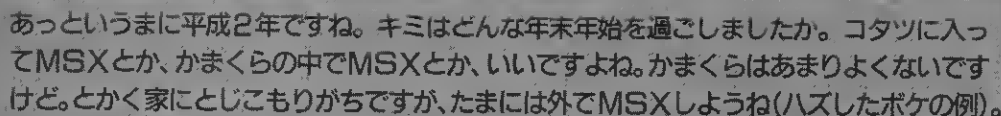 あっというまに平成2年ですね。キミはどんな年末年始を過ごしましたか。コタツに入っ
てMSXとか、かまくらの中でMSXとか、いいですよね。かまくらはあまりよくないです
けど。とかく家にとじこもりがちですが、たまには外でMSXしようね(ハズしたボケの例)。